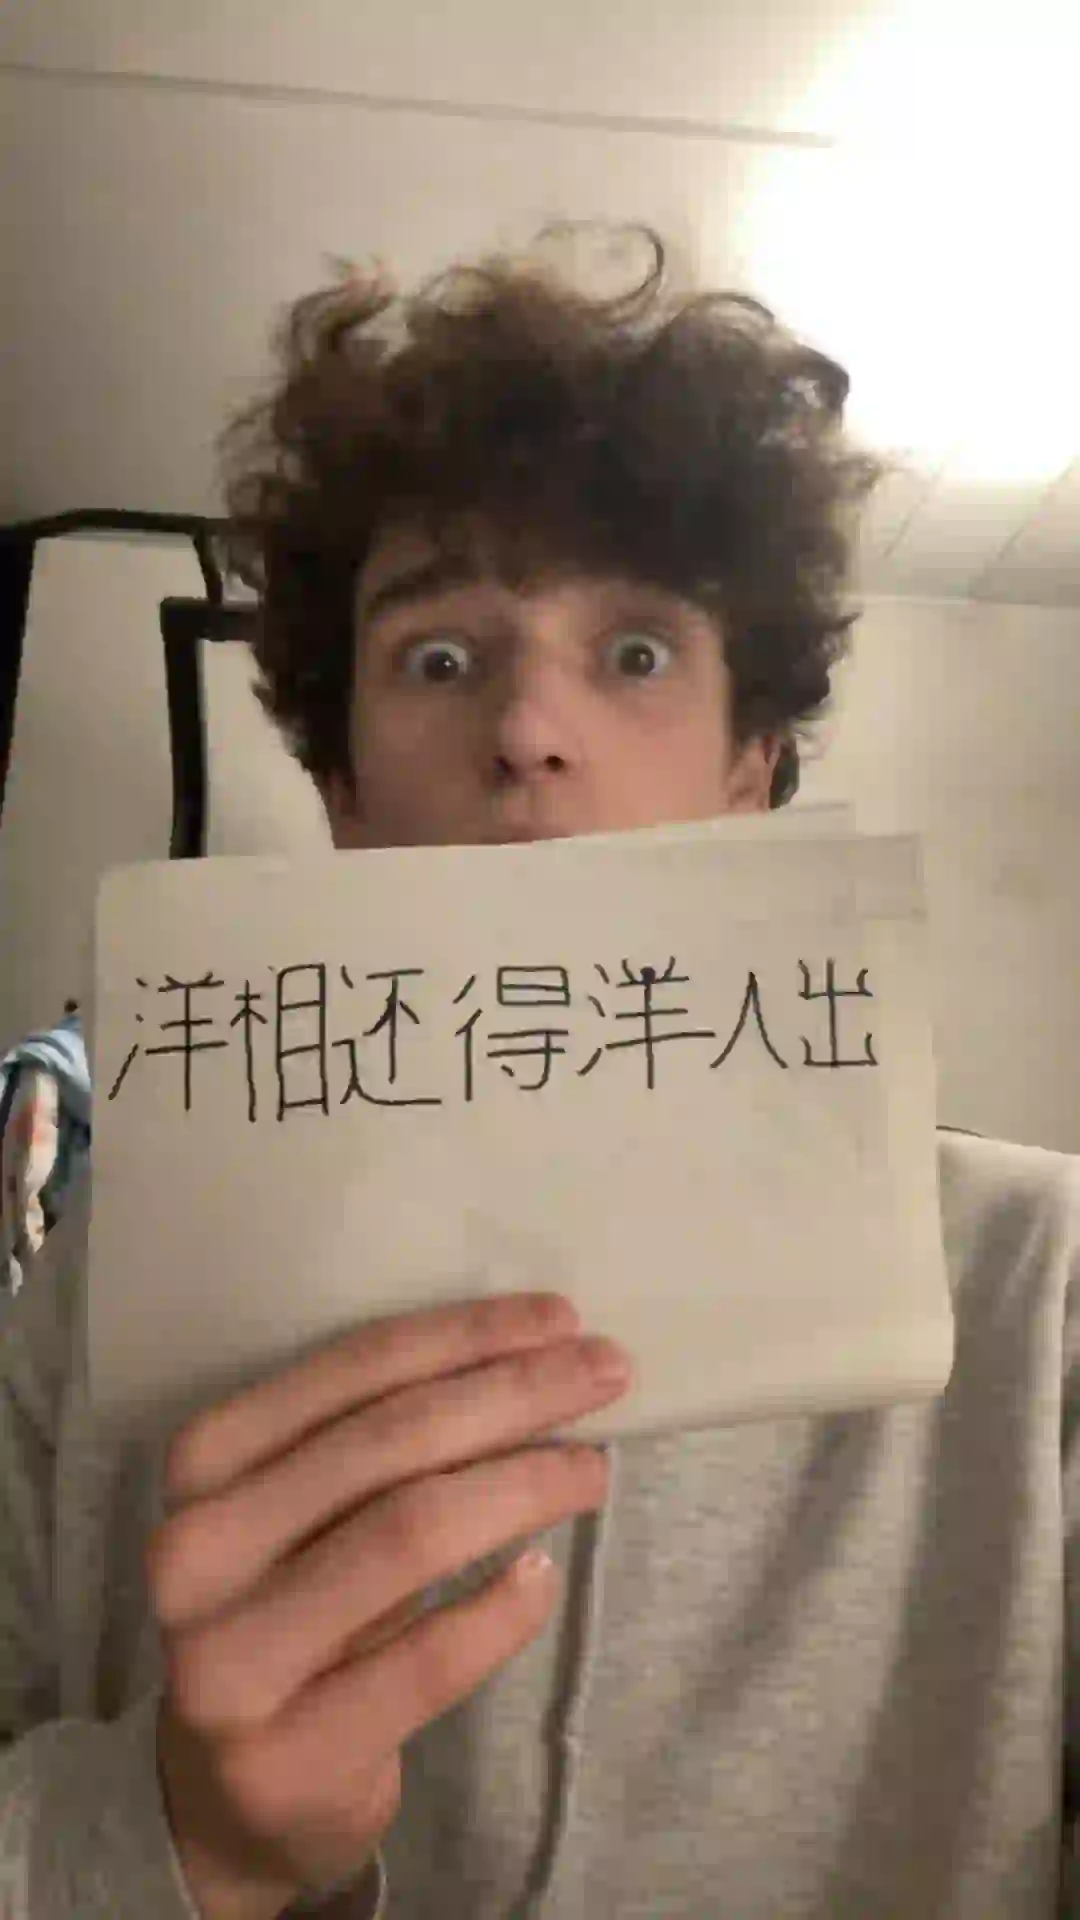 洋相还得洋人出